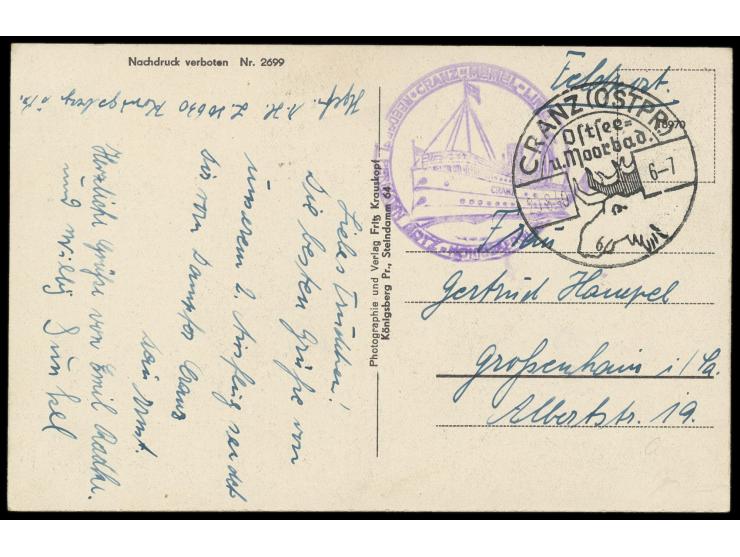 Nachdruck verboten Nr. 2699
Königsberg
Liebes Trudchen!
Die besten Grüße von
unserem 2. Ausflug sendet
Dir von Dampfer Cranz
Dein Ernst.
Herzliche Grüße von Emil Radtke.
und Willy Dunkel
Photographie und Verlag Fritz Krauskopf
Königsberg Pr., Steindamm 64
CRANZ-MEMEL-
CRANZ
Feldpost.
CRANZ (OSTPR)
Ostsee-
u. Moorbad.
6-7
Frau
Gertrud Hampel
Großenhain i/Sa.
Albertstr. 19.